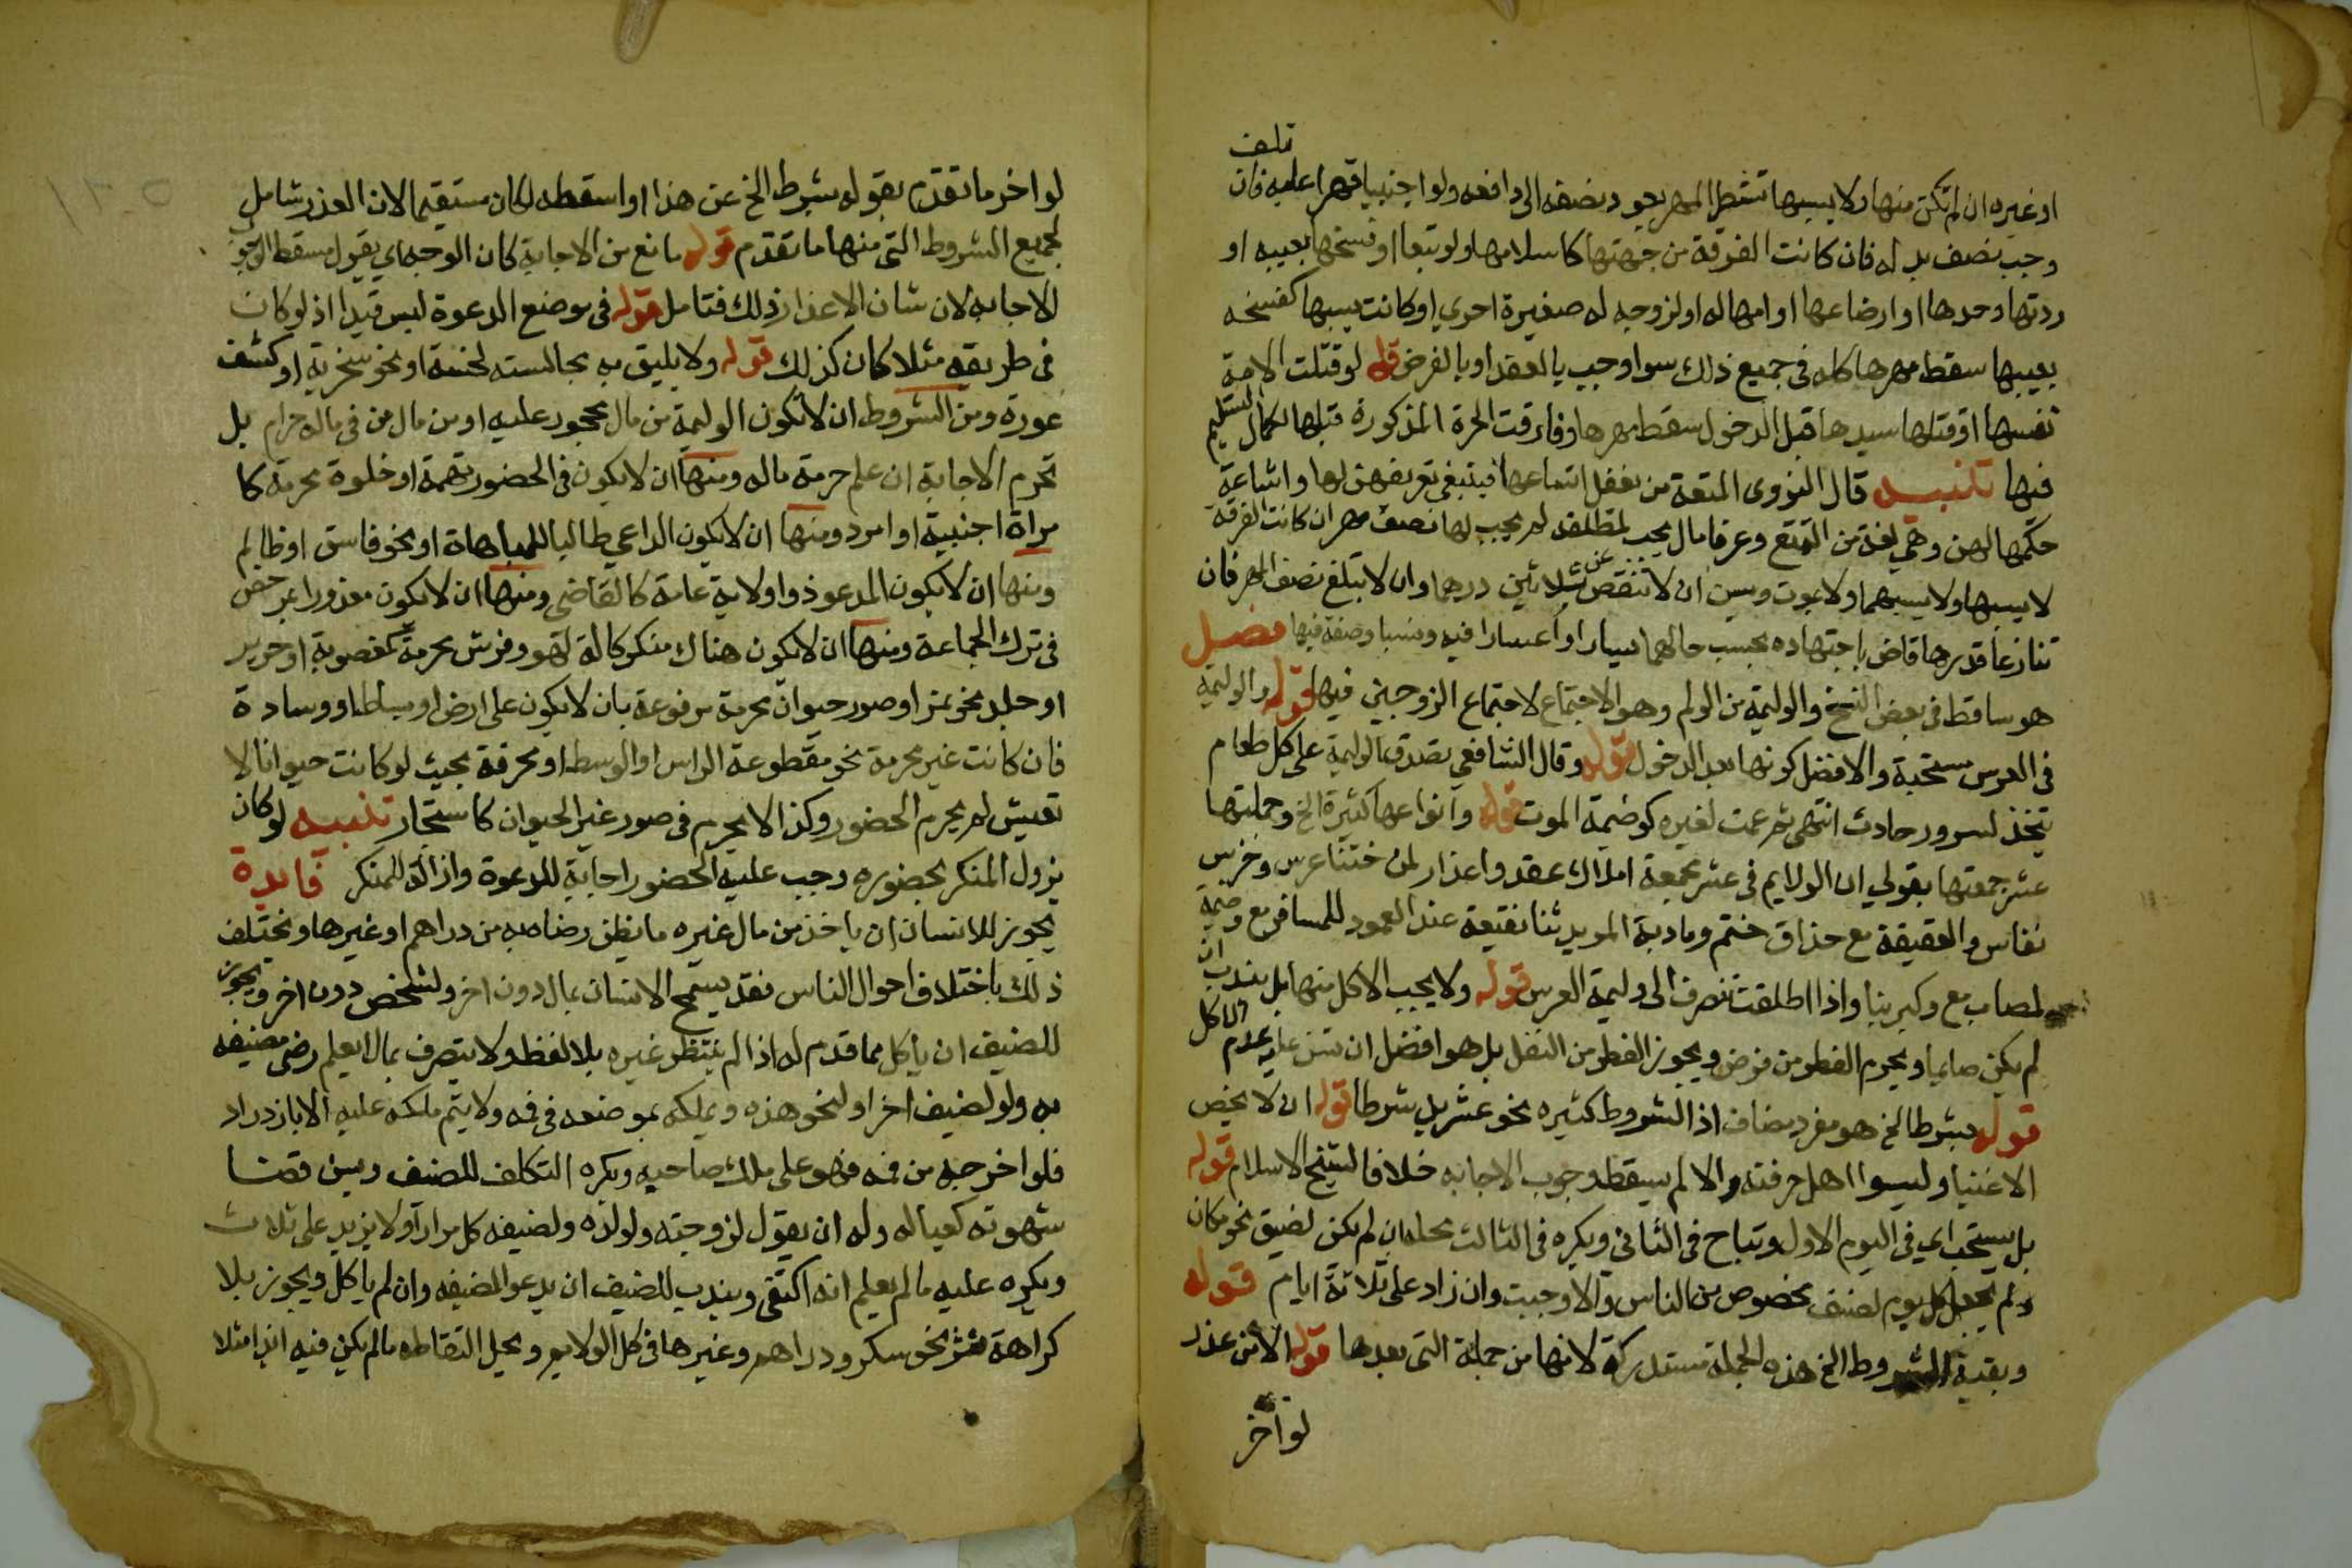 تلف
او غيره ان لم تكن منها ولا بسببها تشطر المهر بعود نصفه الى دافعه ولو اجنبيا قهرا عليه فان
وجب نصف بدله فان كانت الفرقة من جهتها كاسلامها ولو تبعا او فسخها بعيبه او
ردتها وحدها او ارضاعها او امها له او لزوجه له صغيرة اخري او كانت بسببها كفسخه
بعيبها سقط مهرها كله فى جميع ذلك سوا وجب بالعقد او بالفرض قوله لو قتلت الامة
نفسها او قتلها سيدها قبل الدخول سقط مهرها وفارقت الحرة المذكورة قبلها لكمال التسليم
فيها تنبيه قال النووى المتعة من يغفل استماعها فينبغي تعريفهن لها واشاعة
حكمها لهن وهي لغة من التمتع وعرفا مال يجب لمطلقه لم يجب لها نصف مهر ان كانت الفرقة
لا بسببها ولا بسببهما ولا بموت وسن ان لا تنقص عن ثلاثين درهما وان لا تبلغ نصف المهر فان
تنازعا قدرها قاض باجتهاده بحسب حالهما يسارا واعسارا فيه ونسبا وصفة فيها فصل
هو ساقط فى بعض النسخ والوليمة من الولم وهو الاجتماع لاجتماع الزوجين فيها قوله والوليمة
فى العرس مستحبة والافضل كونها بعد الدخول قوله وقال الشافعي تصدق الوليمة على كل طعام
يتخذ لسرور حادث انتهى ثم عمت لغيره كوضيمة الموت قوله وانواعها كثيرة الخ وجملتها
عشر جمعتها بقولي ان الولايم فى عشر مجمعة املاك عقد واعذار لمن ختنا عرس وخرس
نفاس والعقيقة مع حذاق ختم ومادبة المويد ثنا نقيعة عند العود للمسافر مع وضيمة
لمصاب مع وكير بنا واذا اطلقت تصرف الى وليمة العرس قوله ولا يجب الاكل منها بل يندب ان
لم يكن صايما ويحرم الفطر من فرض ويجوز الفطر من النفل بل هو افضل ان شق عليه عدم الاكل
قوله بشرط الخ هو مفرد مضاف اذ الشروط كثيره نحو عشرين شرطا قوله ان لا يخص
الاغنيا وليسوا اهل حرفته والا لم يسقط وجوب الاجابه خلافا لشيخ الاسلام قوله
بل يستحب اي في اليوم الاول وتباح فى الثاني ويكره فى الثالث محله ان لم يكن لضيق نحو مكان
ولم يجعل كل يوم لصنف مخصوص من الناس والا وجبت وان زاد على ثلاثة ايام قوله
وبقية الشروط الخ هذه الجملة مستدركة لانها من جملة التى بعدها قوله الا من عذر
لو اخر
لو اخر ما تقدم بقوله بشرط الخ عن هذا او اسقطه لكان مستقيما لان العذر شامل
لجميع الشروط التى منها ما تقدم قوله مانع من الاجابة كان الوجه اي يقول مسقط لوجوب
الاجابه لان شان الاعذار ذلك فتامل قوله فى موضع الدعوة ليس قيدا اذ لو كان
فى طريقه مثلا كان كذلك قوله ولا يليق به مجالسته لخسة او نحو سخرية او كشف
عورة ومن الشروط ان لا تكون الوليمة من مال محجور عليه او من مال من فى ماله حرام بل
تحرم الاجابة ان علم حرمة ماله ومنها ان لا يكون فى الحضور تهمة او خلوة محرمة كا
مراة اجنبية او امرد ومنها ان لا يكون الداعي طالبا للمباهاة او نحو فاسق او ظالم
ومنها ان لا يكون المدعو ذو اولاية عامة كالقاضي ومنها ان لا يكون معذورا بمرخص
فى ترك الجماعة ومنها ان لا يكون هناك منكر كالة لهو وفرش محرمة كمغصوبة او حرير
او جلد نحو نمر او صور حيوان محرمة مرفوعة بان لا يكون على ارض او بساط او وسادة
فان كانت غير محرمة نحو مقطوعة الراس او الوسط او مخرقة بحيث لو كانت حيوانا لا
تعيش لم يحرم الحضور وكذا لا يحرم فى صور غير الحيوان كاشجار تنبيه لو كان
يزول المنكر بحضوره وجب عليه الحضور اجابة للدعوة وازالة للمنكر فايدة
يجوز للانسان ان ياخذ من مال غيره ما يظن رضاه به من دراهم او غيرها ويختلف
ذلك باختلاف احوال الناس فقد يسمح الانسان بمال دون اخر ولشخص دون اخر ويجوز
للضيف ان ياكل مما قدم له اذا لم ينتظر غيره بلا لفظ ولا يتصرف بما لا يعلم رضى مضيفه
به ولو لضيف اخر او لنحو هذه ويملكه بموضعه فى فمه ولا يتم ملكه عليه الا بازدراد
فلو اخرجه من فمه فهو على ملك صاحبه ويكره التكلف للضيف وسن قضا
شهوته كعياله وله ان يقول لزوجته ولولده ولضيفه كل مرارا ولا يزيد على ثلاث
ويكره عليه ما لم يعلم انه اكتفى ويندب للضيف ان يدعو لمضيفه وان لم ياكل ويجوز بلا
كراهة نثر نحو سكر ودراهم وغيرها فى كل الولايم ويحل التقاطه ما لم يكن فيه ايذا مثلا